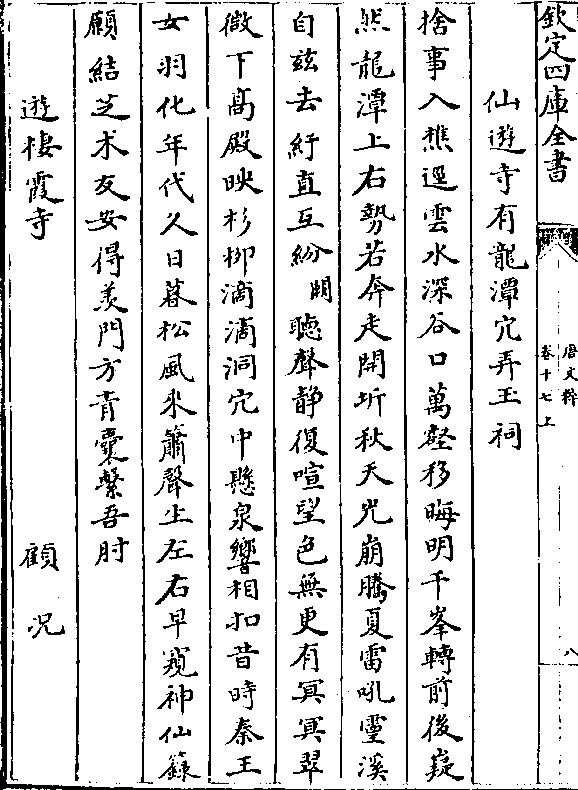 欽定四庫全書
唐文粹
卷十七上
八
仙遊寺有龍潭穴弄玉祠
捨事入樵逕雲水深谷口萬壑移晦明千峯轉前後嶷
然龍潭上石勢若奔走開坼秋天光崩騰夏雷吼靈溪
自兹去紆直互紛糾聽聲静復喧望色無更有冥冥翠
微下高殿映杉柳滴滴洞穴中懸泉響相扣昔時秦王
女羽化年代久日暮松風来簫聲生左右早窺神仙籙
願結芝术友安得羨門方青囊繫吾肘
遊棲霞寺 顧况